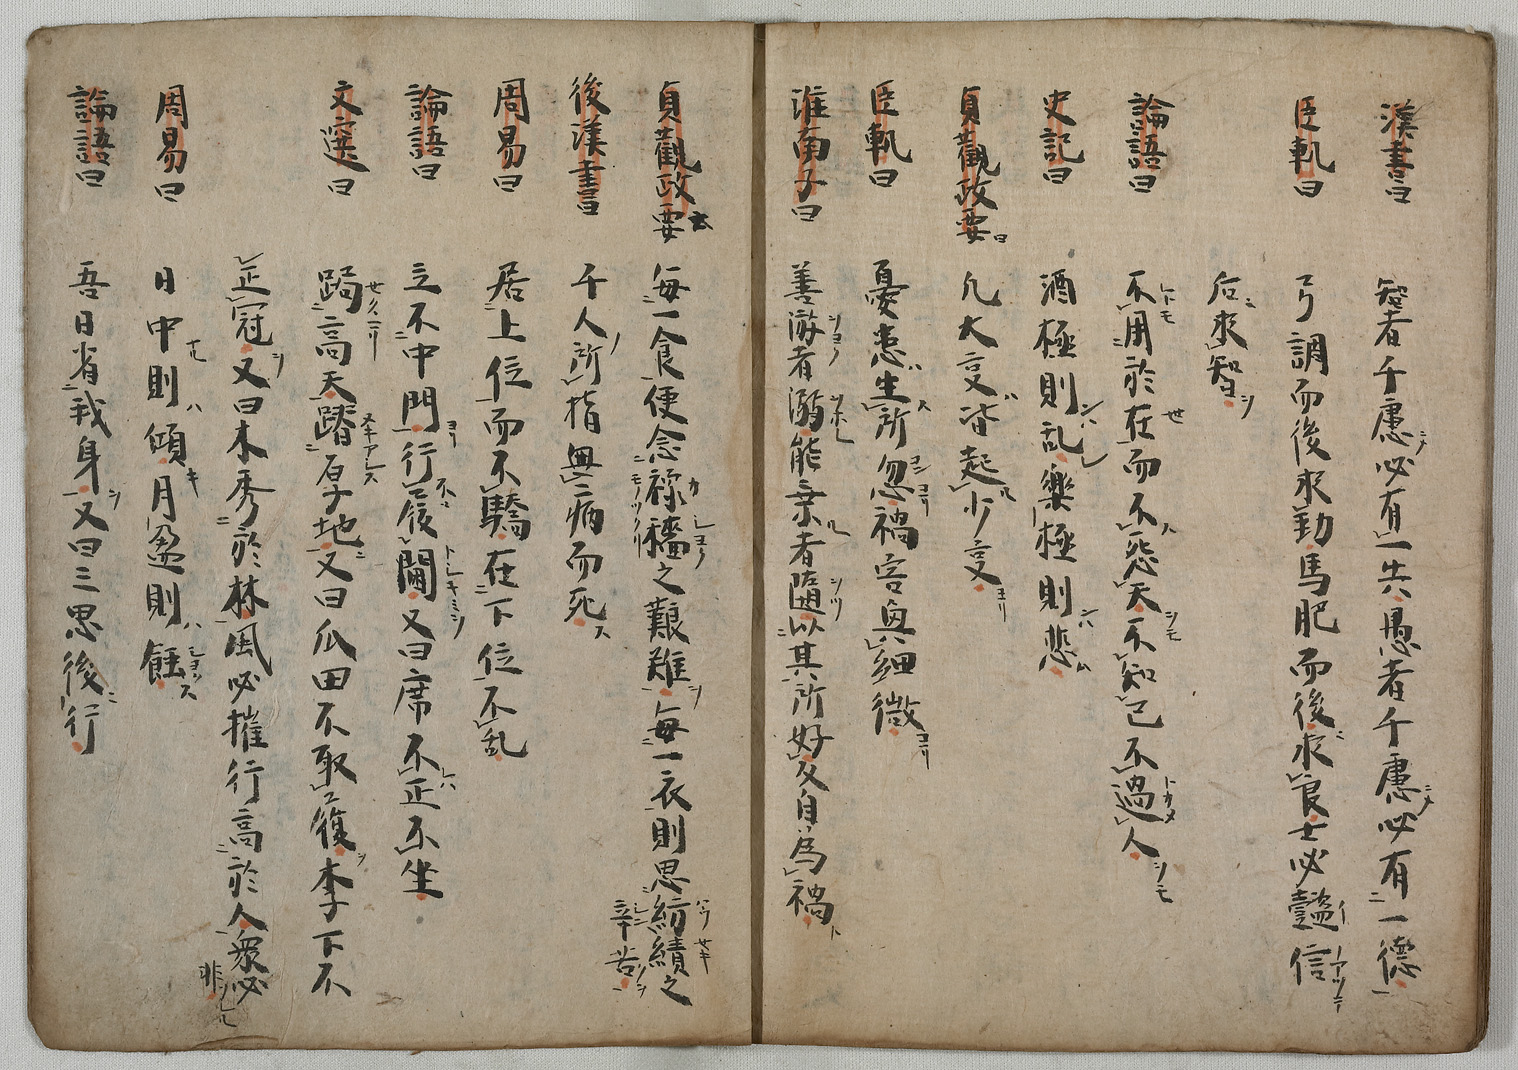 漢書曰 智者千慮必有一失愚者千慮必有一德
臣軌曰 弓調而後求勁馬肥而後求良士必懿信
后求智
論語曰 不用於在而不怨天不知己不過人
史記曰 酒極則乱樂極則悲
貞觀政要曰 凡大事皆起少事
臣軌曰 憂患生所忽禍害興細微
淮南子曰 善游者溺能乗者隨以其所好反自為禍
貞觀政要云 每一食便念稼穡之艱難每一衣則思紡績之
辛苦
後漢書曰 千人所指無病而死
周易曰 居上位而不驕在下位不乱
論語曰 立不中門行不履閫又曰席不正不坐
文選曰 跼高天蹐厚地又曰瓜田不取履李下不
正冠又曰木秀於林風必摧行高於人衆必
非
周易曰 日中則傾月盈則蝕
論語曰 吾日省我身又曰三思後行